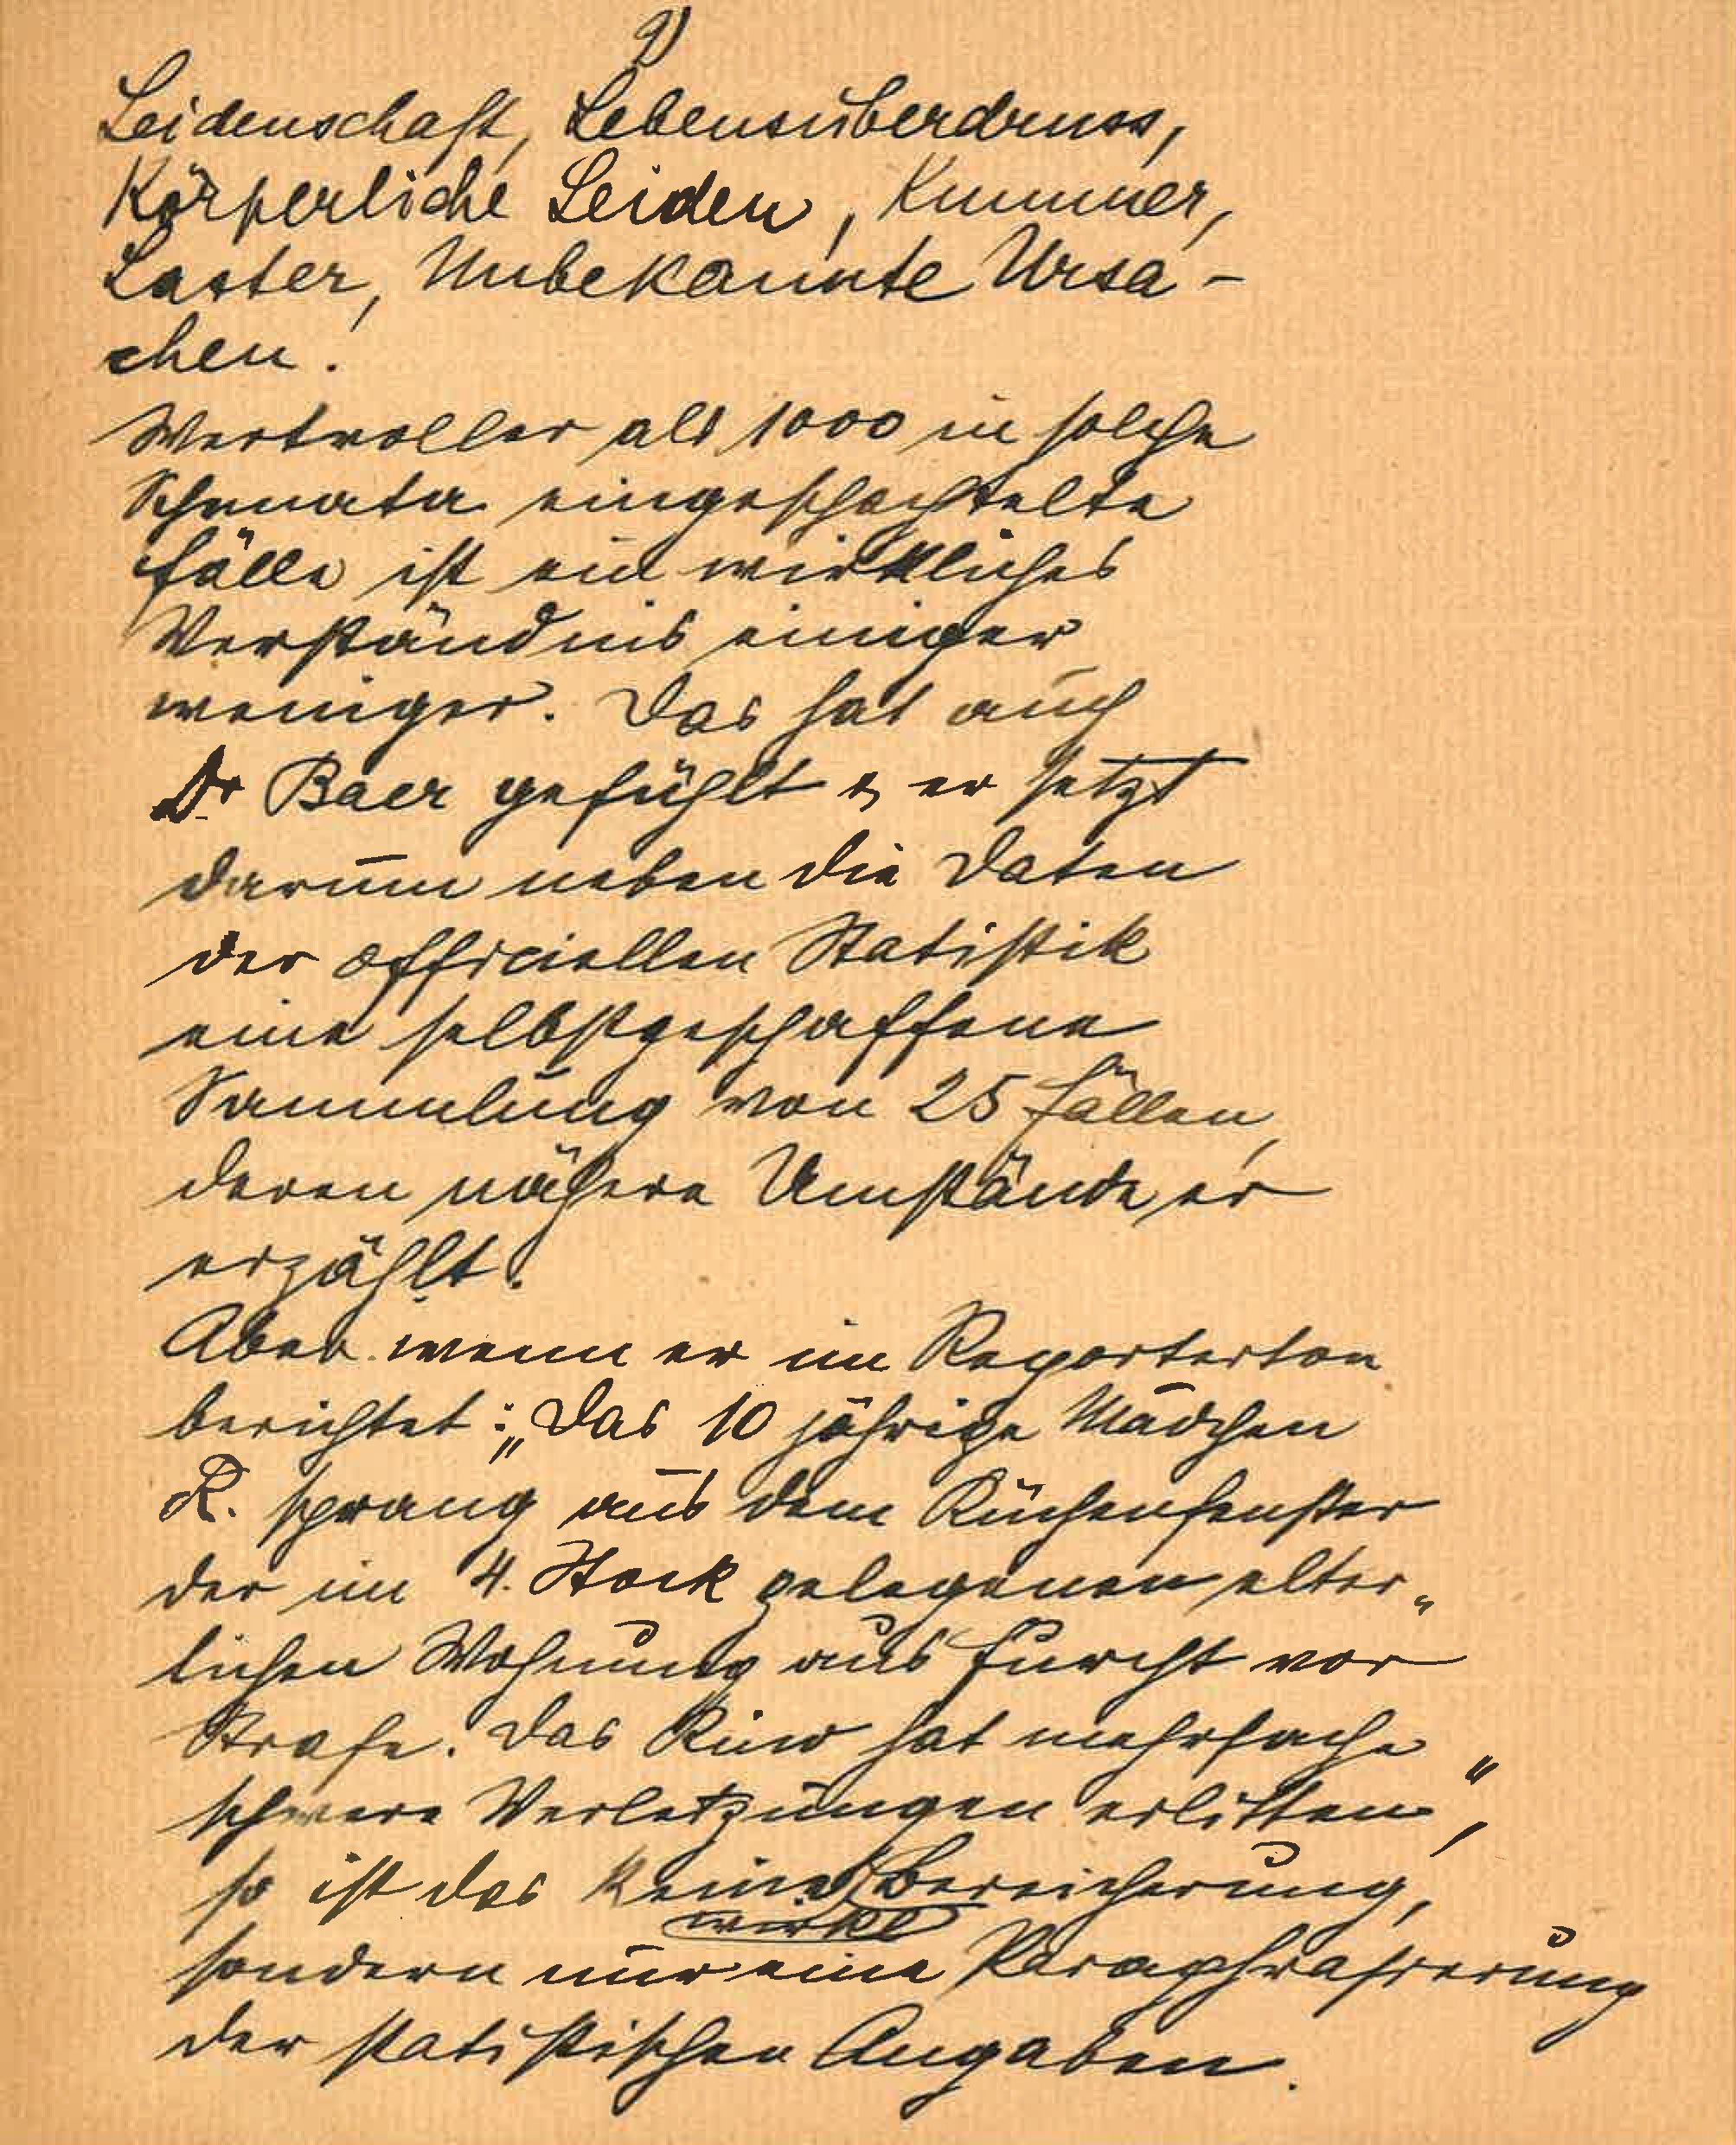 9)
Leidenschaft, Lebensüberdruss,
Körperliche Leiden, Kummer,
Laster, Unbekannte Ursa-
chen.
Wertvoller als 1000 in solche
Schemata eingeschachtelte
Fälle ist ein wirkliches
Verständnis einiger
weniger. Das hat auch
Dr Baer gefühlt & er setzt
darum neben die Daten
der officiellen Statistik
eine selbstgeschaffene
Sammlung von 25 Fällen,
deren nähere Umstände er
erzählt.
Aber wenn er im Reporterton
berichtet: „Das 10 jährige Mädchen
R. sprang aus dem Küchenfenster
der im 4. Stock gelegenen elter„
lichen Wohnung aus Furcht vor
Strafe. Das Kind hat mehrfache
schwere Verletzungen erlitten“,
so ist das keine Bereicherung,
wirkl
sondern nur eine Paraphrasierung
der statistischen Angaben.